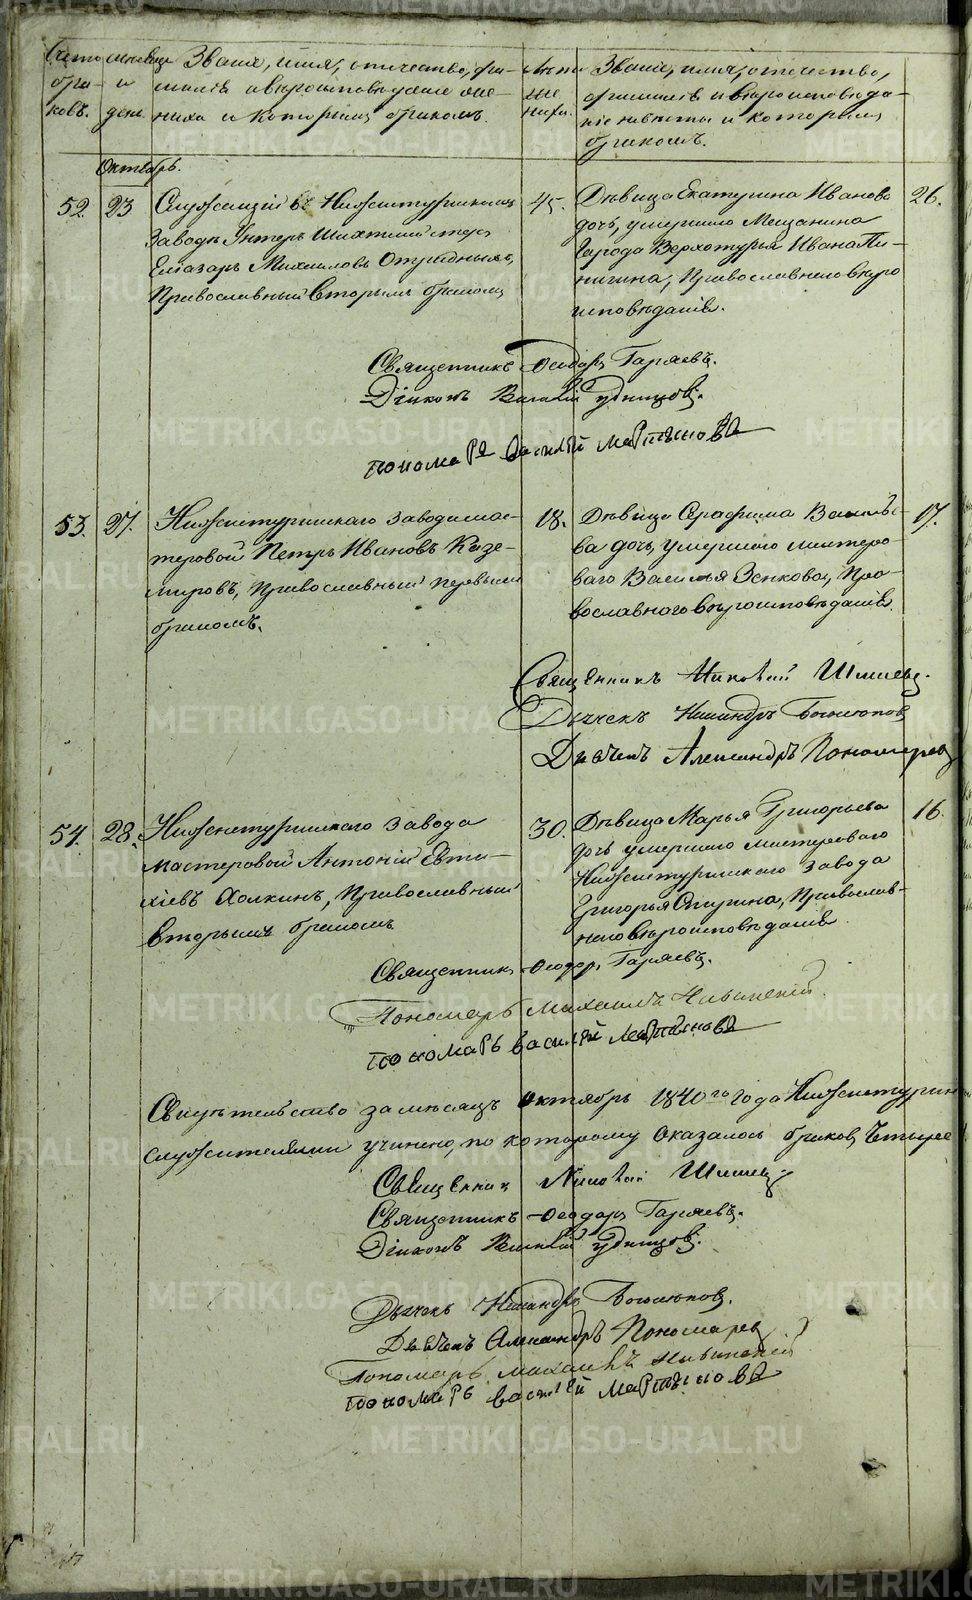 Счетъ бра- ковъ.
месяцъ и день.
Званіе, имя, отчество, фа-
милія и вѣроисповѣданіе же-
ниха и которымъ бракомъ.
лѣта же ниха.
Званіе, имя, отчество,
фамилія и вѣроисповѣда-
ніе невѣсты и которымъ
бракомъ.
Октябрь.
52. 23 Служащій въ Нижнетуринскомъ
Заводѣ Унтеръ Шихтмейстеръ
Елиазаръ Михайловъ Отрадныхъ,
Православный вторымъ бракомъ
45.
Дѣвица Екатерина Иванова
дочь, умершаго Мещанина
города Верхотурья Ивана Пи-
нигина, Православнаго вѣро
исповѣданія.
26.
Священникъ Ѳеодоръ Гаряевъ.
Діаконъ Василій Удинцовъ.
пономарь Василей Мартыновъ
53. 27. Нижнетуринскаго завода мас-
теровой Петръ Ивановъ Казе-
мировъ, Православный первымъ
бракомъ.
18.
Дѣвица Серафима Василье-
ва дочь, умершаго мастеро-
ваго Василья Зенкова, Пра-
вославнаго вѣроисповѣданія.
17.
Священникъ Николай
Дьячекъ Никандръ
Дьячекъ Александръ Пономаревъ
54. 28. Нижнетуринскаго завода
мастеровой Антоній Евти-
хіевъ Холкинъ, Православный
вторымъ бракомъ
30.
Дѣвица Марья Григорьева
дочь умершаго мастероваго
Нижнетуринскаго завода
Григорья Опурина, Православ-
наго вѣроисповѣданія
16.
Священникъ Ѳеодоръ Гаряевъ.
Пономарь Михаилъ
пономарь василей мартыновъ
Свидѣтельство за мѣсяцъ октябрь 1840го года Нижнетурин
служителями учинено, по которому оказалось браковъ четыре
Священникъ Николай
Священникъ Ѳеодоръ Гаряевъ.
Діаконъ Василій Удинцовъ.
Дьячекъ Никандръ
Дьячекъ Александръ Пономаревъ
Пономарь Михаилъ
пономарь василей мартыновъ
METRIKI.GASO-URAL.RU